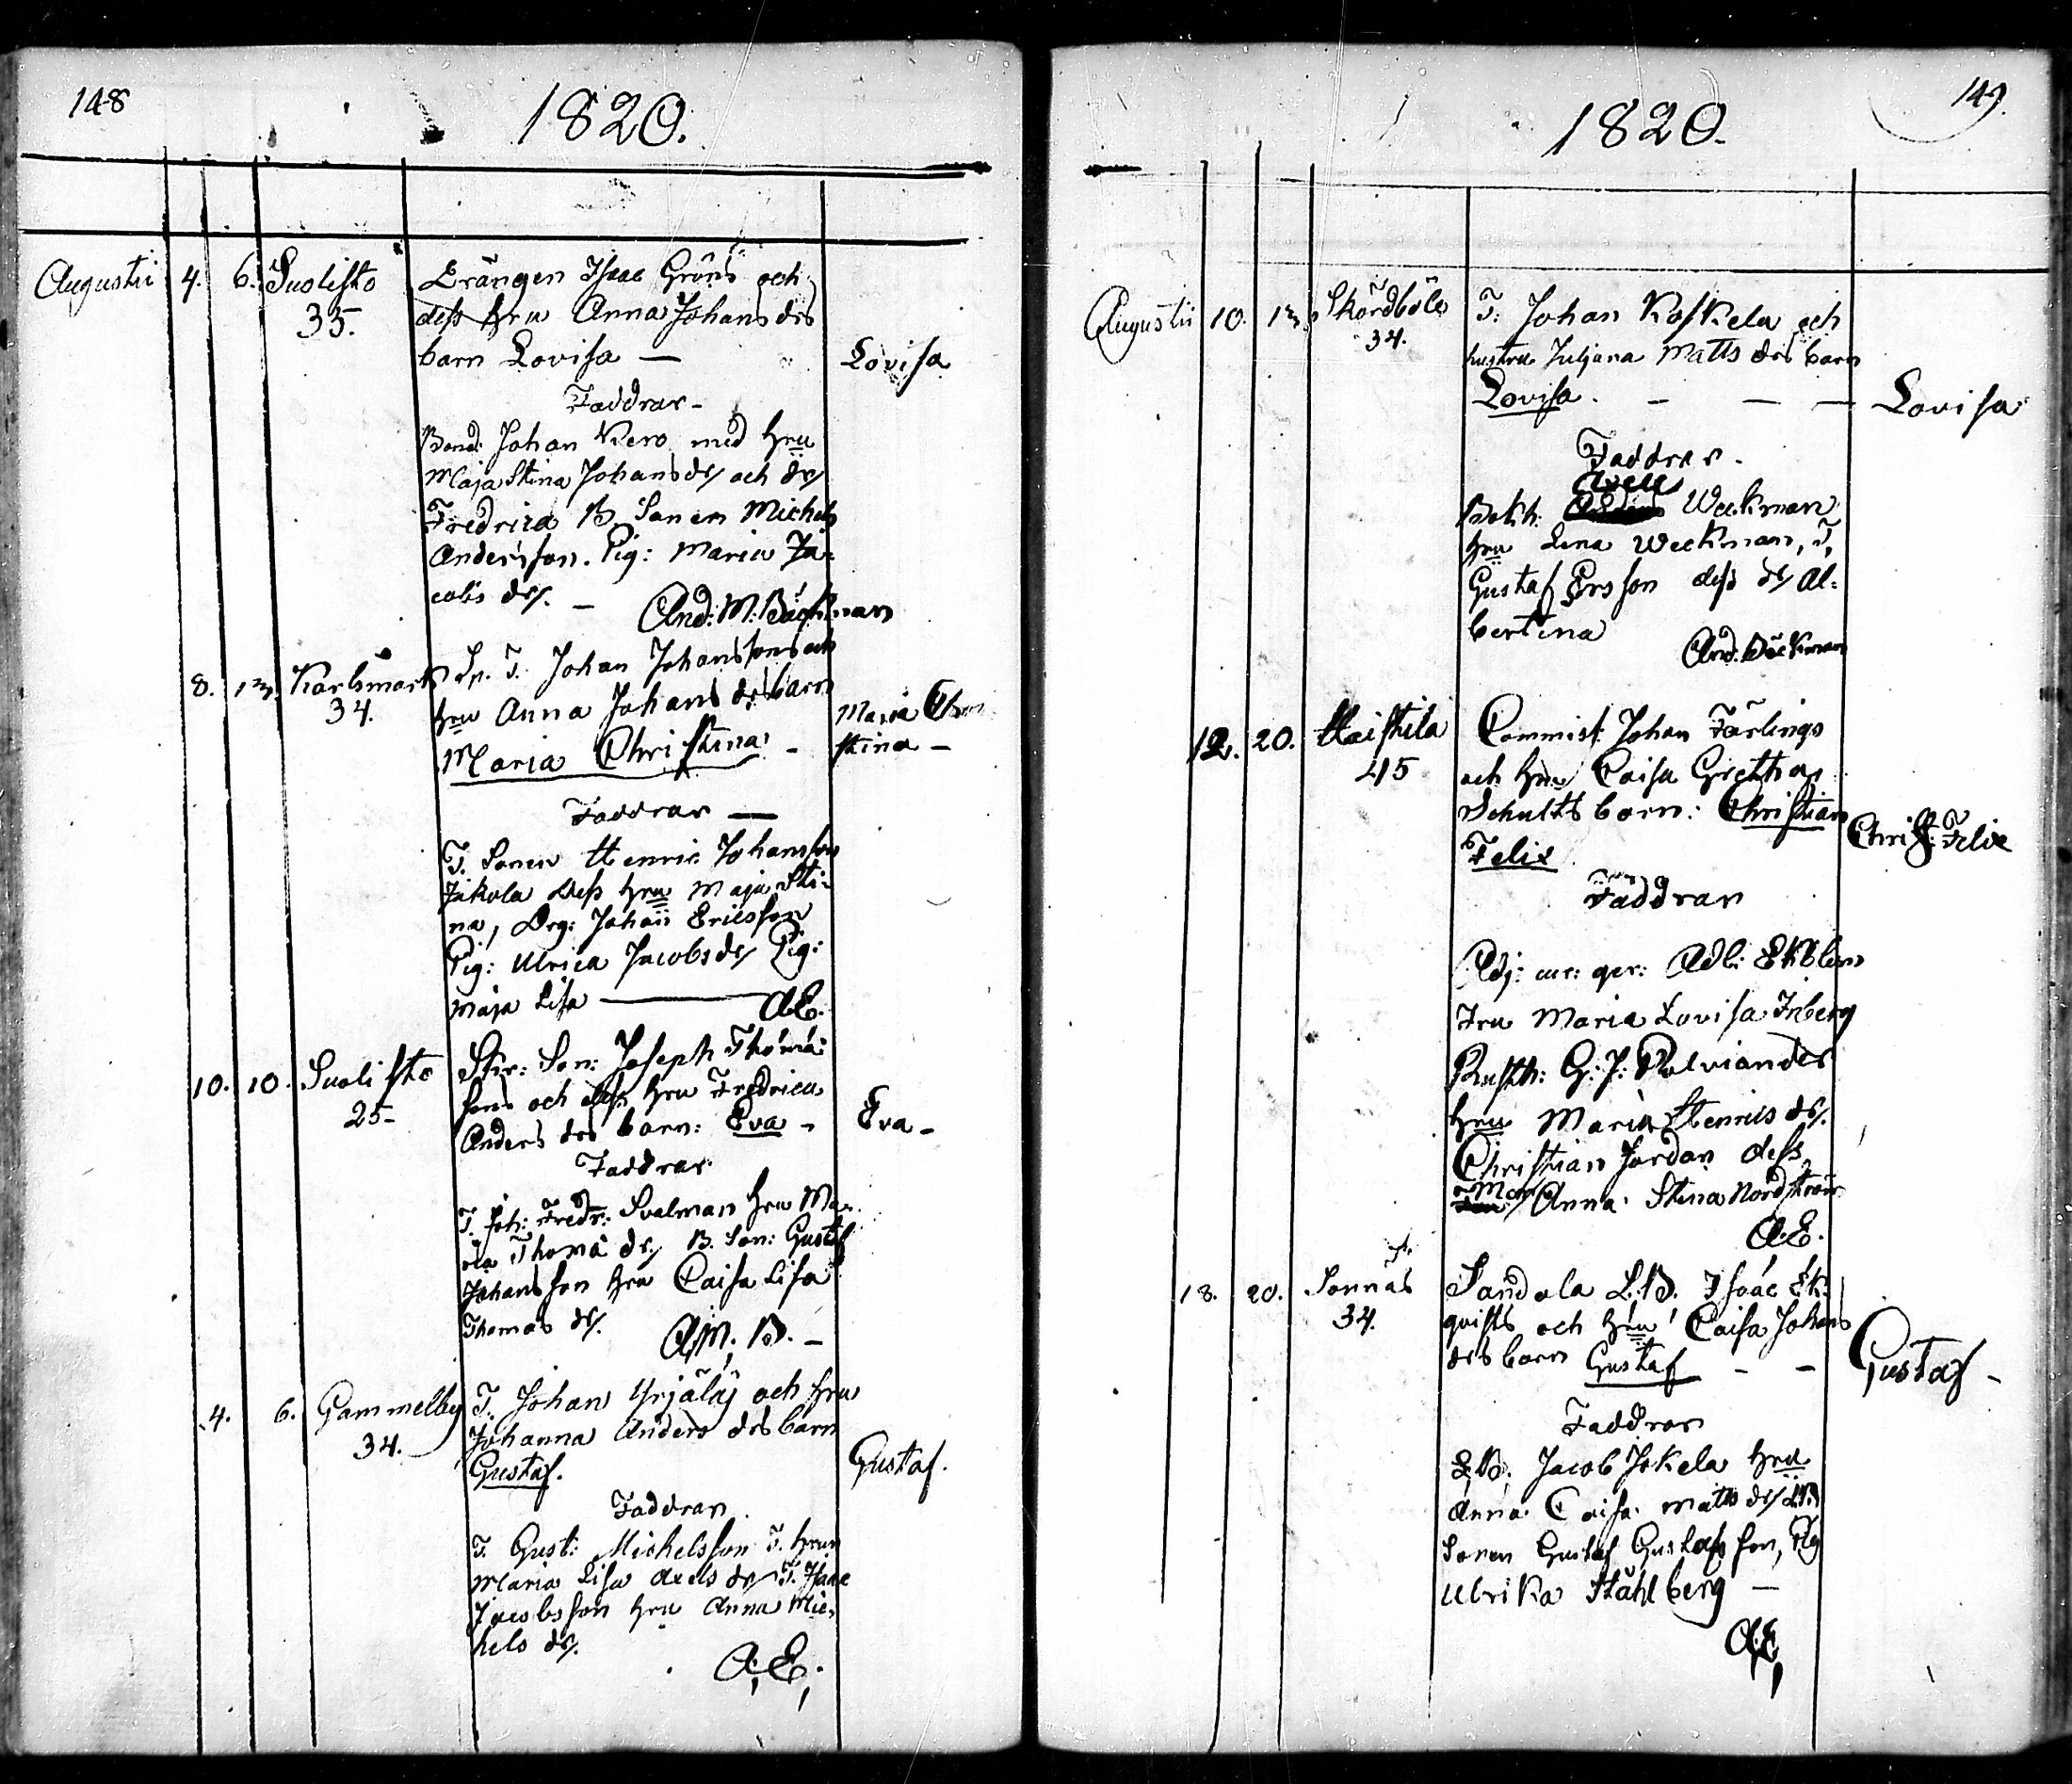 148
1820.
Augustii 4. 6. Suolisto
35.
Erängen Isaac Gröns och
dess hru Anna Johans drs
barn Lovisa —
Lovisa
Faddrar -
Bond: Johan Kero med hru
Maja Stina Johansdr och dr
Fredrica B. Sonen Michel
Andersson. Pig: Maria Ja-
cobs dr. —
And: M: Bäckman
8. 13. Karlsmark
34.
Sp. T. Johan Johanssons och
hru Anna Johans drs barn
Maria Christina -
Maria Chri
stina -
Faddrar —
T. Sonen Henric Johansson
Jakola dess hru Maja Sti-
na, Drg: Johan Ericsson
Pig: Ulrica Jacobsdr Pig:
Maja Lisa — A.E.
10. 10. Suolisto
25-
Joseph Thoma
sons och dess hru Fredrica
Anders drs barn: Eva -
Eva -
Faddrar
T. Joh: Fredr: Svalman hru Ma-
ria Thoma dr. B. Son: Gustaf
Johansson hru Caisa Lisa
Thomas dr.
A.M. B. -
4. 6. Gammelby
34.
T. Johan Yrjäläs och hru
Johanna Anders drs barn
Gustaf.
Gustaf.
Faddrar
T. Gust: Michelsson T. hrun
Maria Lisa Axels dr T. Isaac
Jacobsson hru Anna Mic-
hels dr.
A: E:
149.
1820.
Augustii 10. 13. Skördböle
34.
T: Johan Koskela och
hustru Juljana Matts drs barn
Lovisa. - — —
Lovisa
Faddrar -
Axell
Bokh: Weckman
hru Lena Weckman, T,
Gustaf Ersson dess dr Al-
bertina
And. Bäckman
12. 20. Haistila
45
Commist: Johan Färlings
och hru Caisa Gretha
Schults barn: Christian
Felix
Christ: Felix
Faddrar
Adj: cur: ger: Adl: Ekblom
Fru Maria Lovisa Inberg
Rusth: G: J: Polviander
hru Maria Henricsdr.
Christian Jordan dess
Mor Anna Stina Nordström
A.E.
18. 20. Sonnäs
34.
Sandola L.B. Isaac Ek-
qvists och hru Caisa Johans
drs barn Gustaf - -
Gustaf -
Faddrar
L.B. Jacob Jokela hru
Anna Caisa Matts dr L.B.
Sonen Gustaf Gustafsson, Pig
Ulrika Ståhlberg —
A.E.